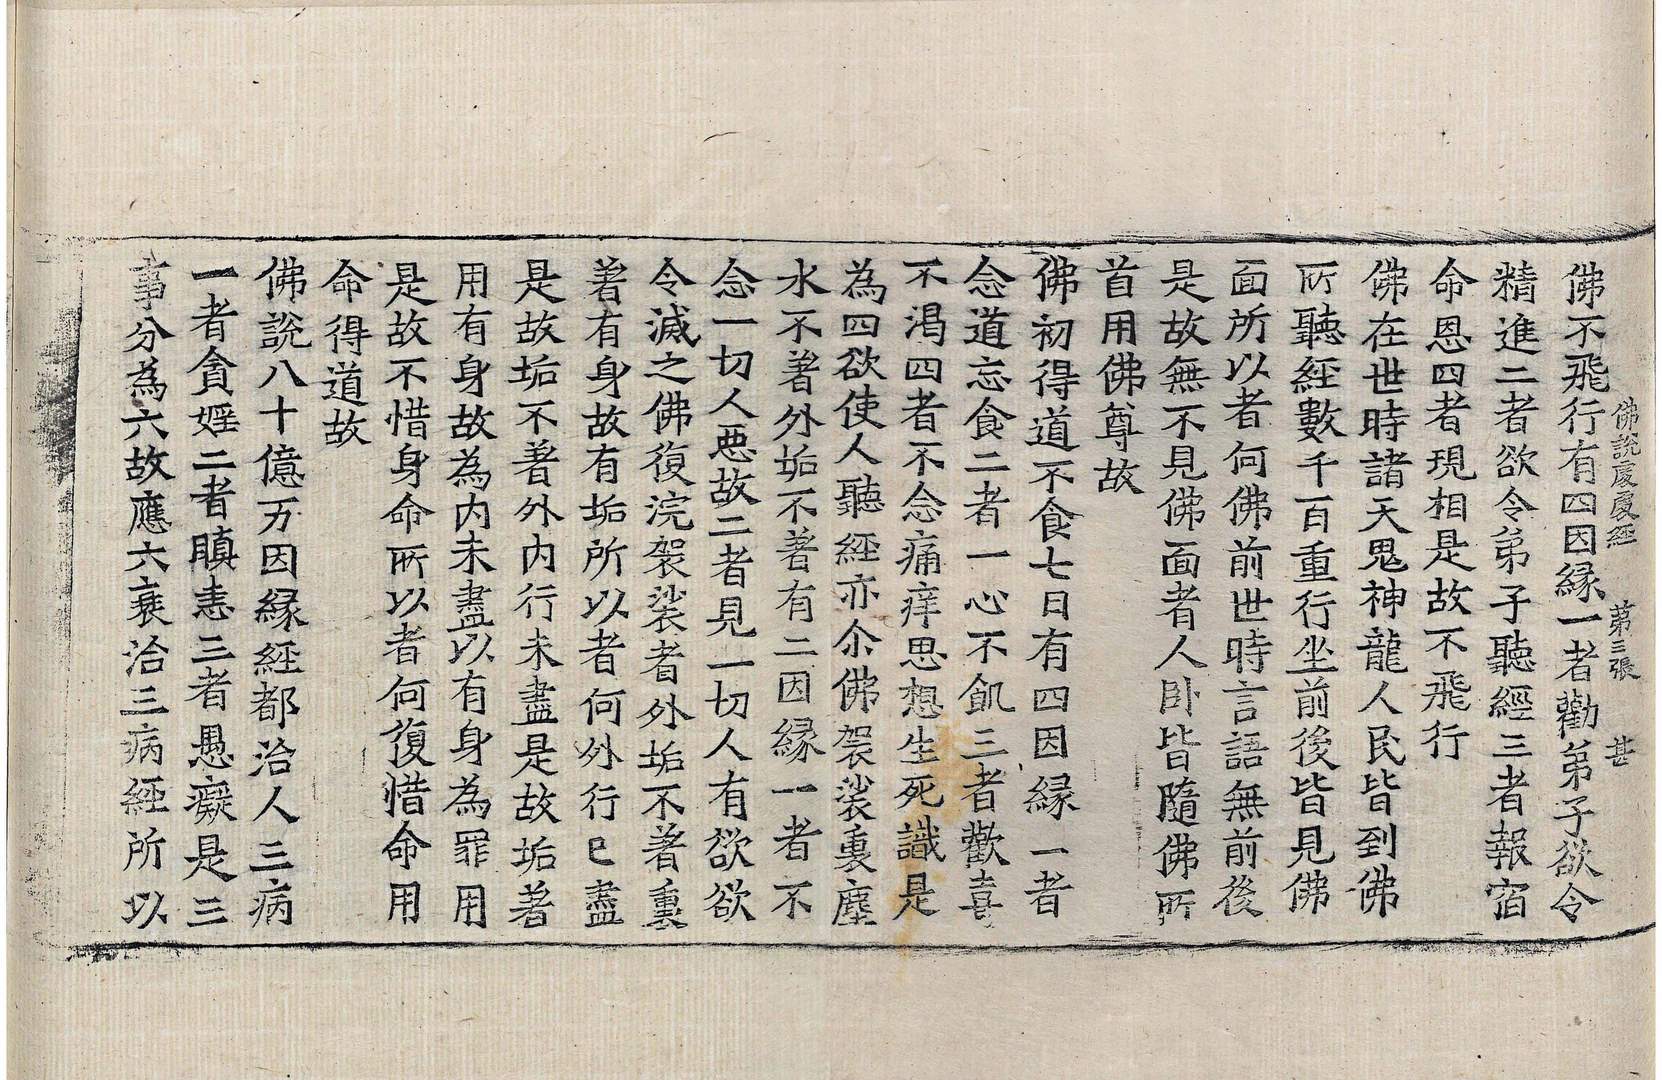 佛說處處經　第三張　甚
佛不飛行有四因緣一者勸弟子欲令
精進二者欲令弟子聽經三者報宿
命恩四者現相是故不飛行
佛在世時諸天鬼神龍人民皆到佛
所聽經數千百重行坐前後皆見佛
面所以者何佛前世時言語無前後
是故無不見佛面者人卧皆隨佛所
首用佛尊故
佛初得道不食七日有四因緣一者
念道忘食二者一心不飢三者歡喜
不渴四者不念痛痒思想生死識是
為四欲使人聽經亦尒佛袈裟裏塵
水不著外垢不著有二因緣一者不
念一切人惡故二者見一切人有欲欲
令滅之佛復浣袈裟者外垢不著裏
著有身故有垢所以者何外行已盡
是故垢不著外内行未盡是故垢著
用有身故為内未盡以有身為罪用
是故不惜身命所以者何復惜命用
命得道故
佛說八十億万因緣經都治人三病
一者貪婬二者瞋恚三者愚癡是三
事分為六故應六衰治三病經所以